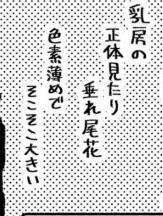 乳房の
正体見たり
垂れ尾花
色素薄めで
そこそこ大きい